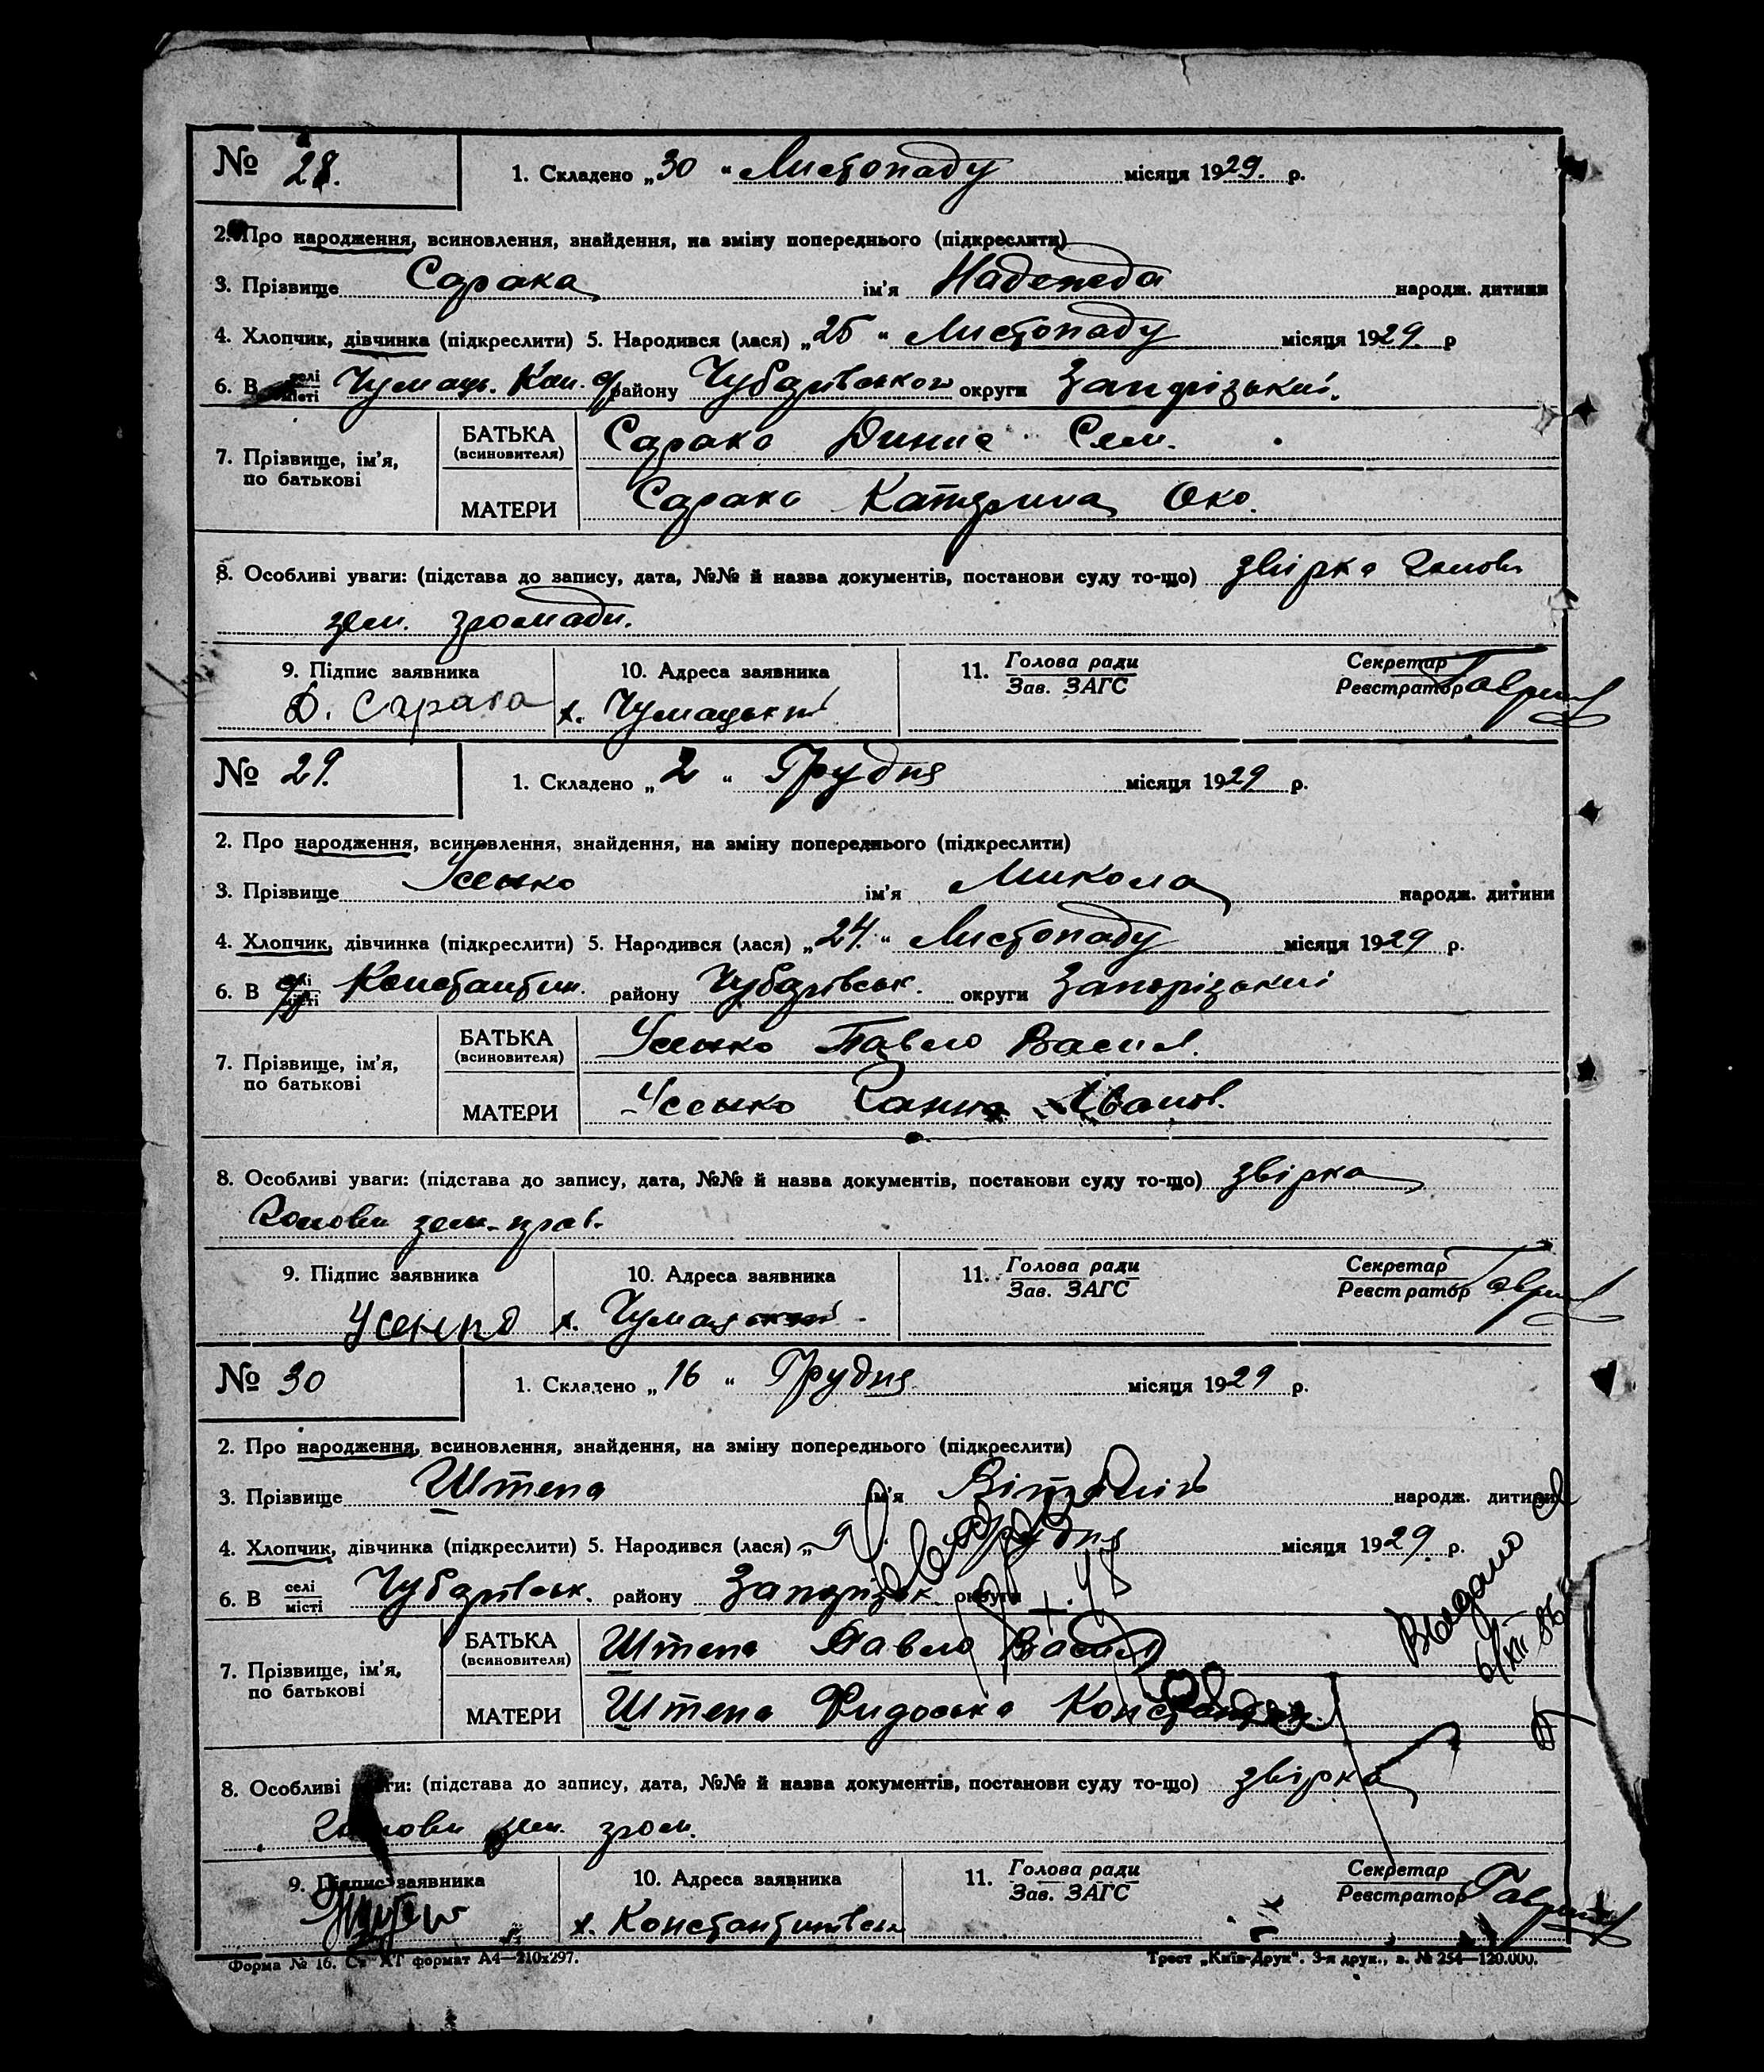 № 28.
1. Складено „30“ Листопаду місяця 1929. р.
2. Про народження, всиновлення, знайдення, на зміну попереднього (підкреслити)
3. Прізвище Сарака ім'я Надежда народж. дитини
4. Хлопчик, дівчинка (підкреслити) 5. Народився (лася) „25“ Листопаду місяця 1929. р
6. В селі місті Чумацьк. району Чубарівського округи Запорізької.
7. Прізвище, ім'я, по батькові
БАТЬКА (всиновителя) Сарака Динис Сем.
МАТЕРИ Сарака Катерина
8. Особливі уваги: (підстава до запису, дата, №№ й назва документів, постанови суду то-що) звірка Голови
зем. громади.
9. Підпис заявника 10. Адреса заявника 11. Голова ради Зав. ЗАГС Секретар Реєстратор
Д. Сарака х. Чумацький
№ 29.
1. Складено „2“ Грудня місяця 1929 р.
2. Про народження, всиновлення, знайдення, на зміну попереднього (підкреслити)
3. Прізвище Усенко ім'я Микола народж. дитини
4. Хлопчик, дівчинка (підкреслити) 5. Народився (лася) „24.“ Листопаду місяця 1929 р.
6. В селі місті Константин. району Чубарівськ. округи Запорізький
7. Прізвище, ім'я, по батькові
БАТЬКА (всиновителя) Усенко Павло Васил.
МАТЕРИ Усенко Ганна Іванов.
8. Особливі уваги: (підстава до запису, дата, №№ й назва документів, постанови суду то-що) звірка
Голови зем. гром.
9. Підпис заявника 10. Адреса заявника 11. Голова ради Зав. ЗАГС Секретар Реєстратор
Усенко х. Чумацький
№ 30
1. Складено „16“ Грудня місяця 1929 р.
2. Про народження, всиновлення, знайдення, на зміну попереднього (підкреслити)
3. Прізвище Штепа ім'я Віталій народж. дитини
4. Хлопчик, дівчинка (підкреслити) 5. Народився (лася) „9 Грудня місяця 1929. р.
6. В селі місті Чубарівськ. району Запорізьк. округи
Видано
7. Прізвище, ім'я, по батькові
БАТЬКА (всиновителя) Штепа Павло Васил
МАТЕРИ Штепа Фидоська Константин.
8. Особливі уваги: (підстава до запису, дата, №№ й назва документів, постанови суду то-що) звірка
Голови зем. гром.
9. Підпис заявника 10. Адреса заявника 11. Голова ради Зав. ЗАГС Секретар Реєстратор
х. Константинівськ
Форма № 16. Ст АТ формат А4—210х297.
Трест „Київ-Друк“. 3-я друк., з. № 254—120.000.